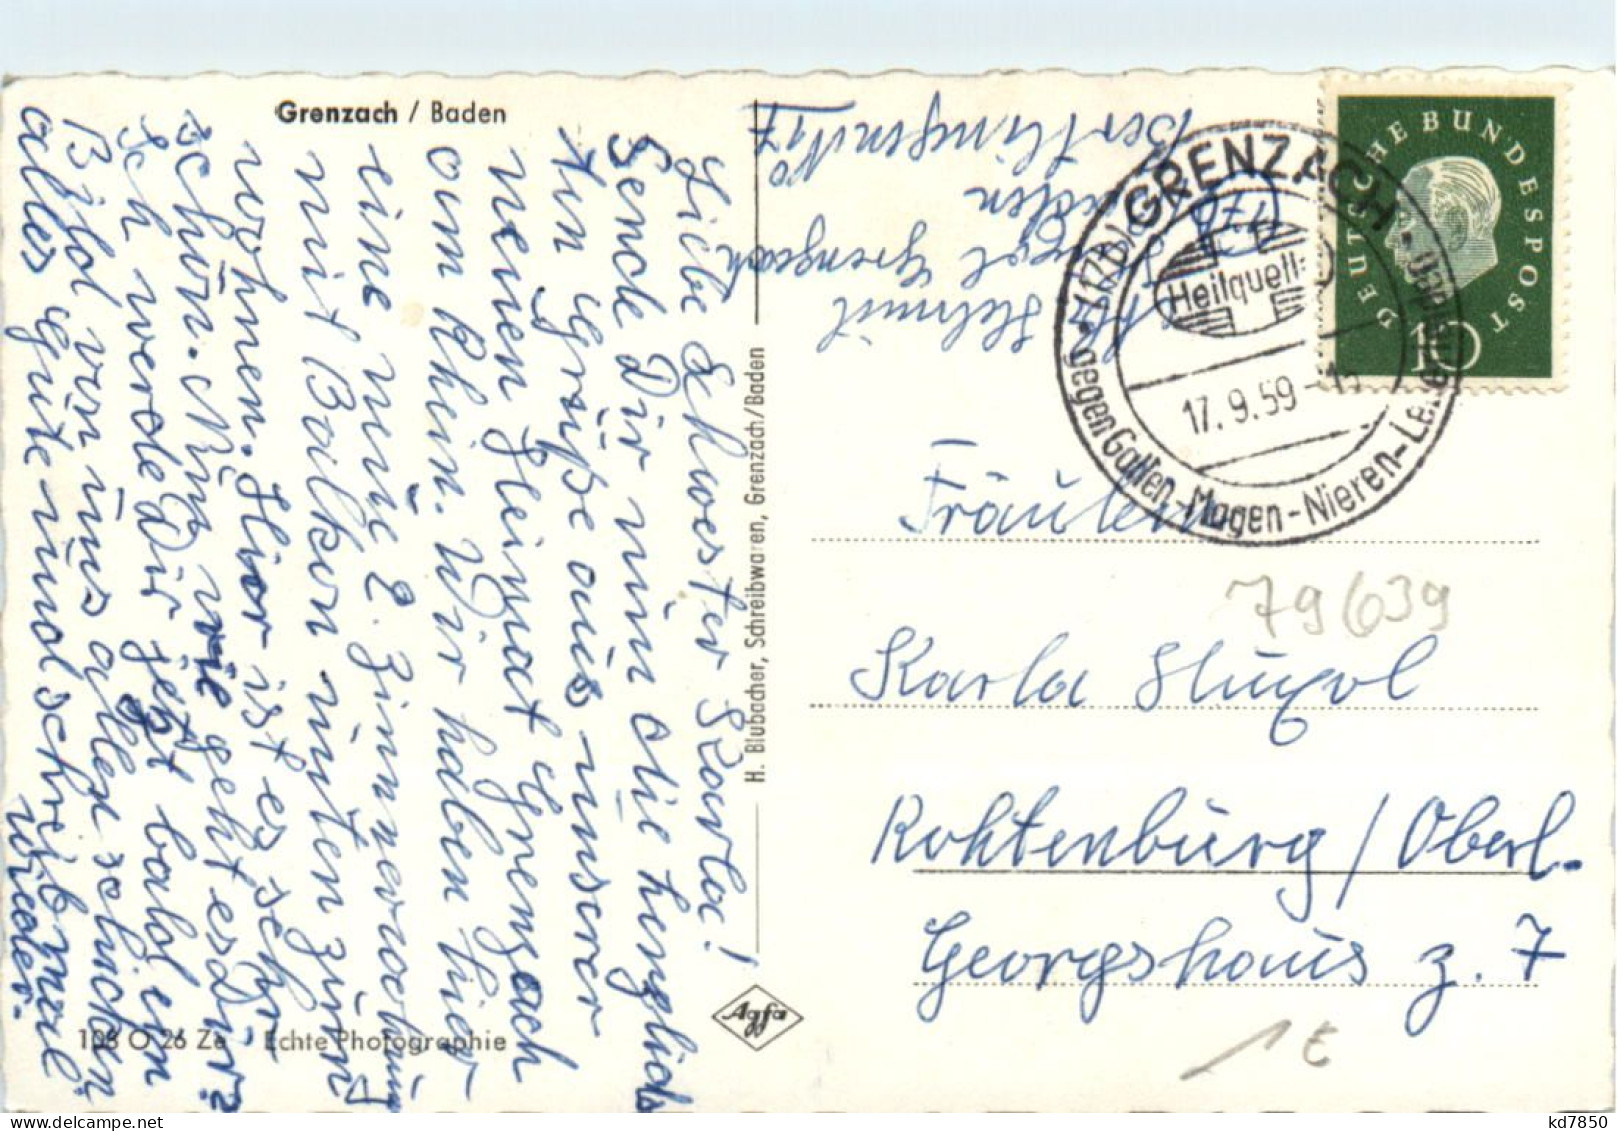 Grenzach / Baden
Liebe Schwester Karla!
Sende Dir nun die herzlichs
ten Grüße aus unserer
neuen Heimat Grenzach
am Rhein. Wir haben hier
eine neue 2. Zimmerwohnung
mit Balkon unten zum
wohnen. Hier ist es sehr
schön. Nun wie geht es Dir?
Ich werde Dir jetzt bald ein
Bild von uns allen schicken
alles Gute und schreib mal
wieder.
108 O 26 Ze Echte Photographie
H. Blubacher, Schreibwaren, Grenzach/Baden
Agfa
Helmut
Grenzach
Baden
No 17
(17b) GRENZACH
Heilquelle
17.9.59
gegen Gallen-Magen-Nieren-
DEUTSCHE BUNDESPOST
10
Fräulein
79639
Karla
Rohtenburg / Oberl.
Georgshaus z. 7
1 €
kd7850